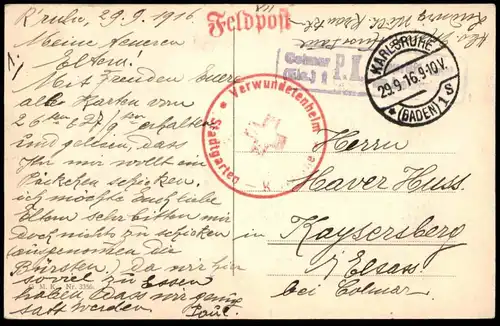 K'ruhe, 29.9.1916
1.
Meine teueren
Eltern.
Mit Freuden Eure
alle Karten vom
26ten & 27/9ten erhalten
und gelesen, dass
Ihr mir wollt ein
Päckchen schicken,
ich möchte Euch liebe
Eltern sehr bitten mir
doch nichts zu schicken
ausgenommen die
Bürsten. Da wir hier
soviel zu Essen
haben dass wir ganz
satt werden. Paul.
M. K. Nr. 3356.
Feldpost
Colmar
(Els.) P.K.
KARLSRUHE
29.9.16.9-10V.
*(BADEN)1s
Verwundetenheim
Stadtgarten - K
Herrn
Xaver Huss.
in Kaysersberg
i/Elsass
bei Colmar